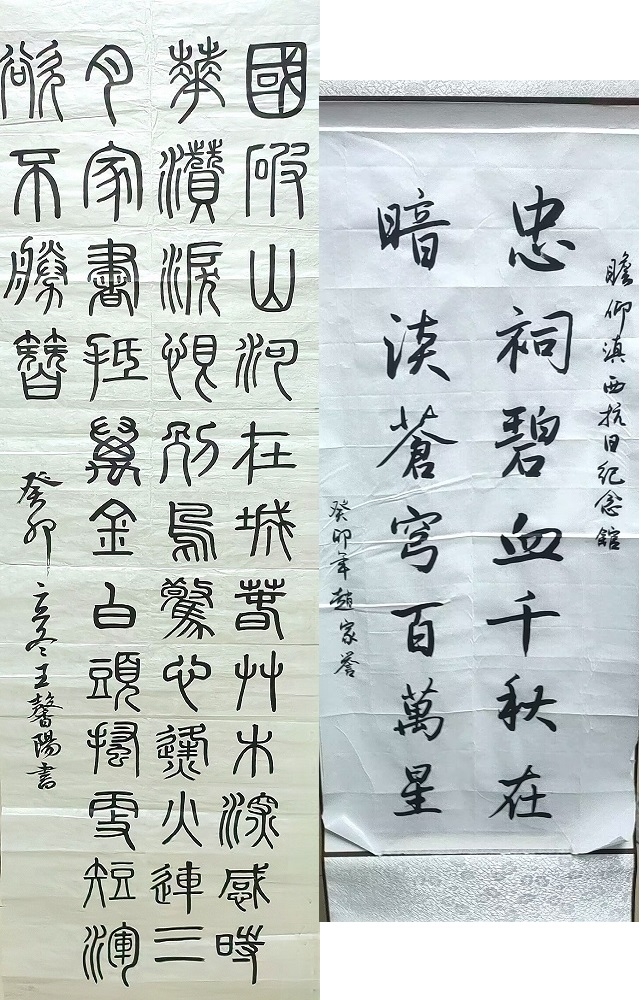 國破山河在城春艸木深感時
華灒淚恨別鳥驚心烽火連三
月家書抵萬金白頭搔更短渾
欲不勝簪
癸卯立冬王馨陽書
瞻仰滇西抗日紀念館
忠祠碧血千秋在
暗淡蒼穹百萬星
癸卯年趙家譽